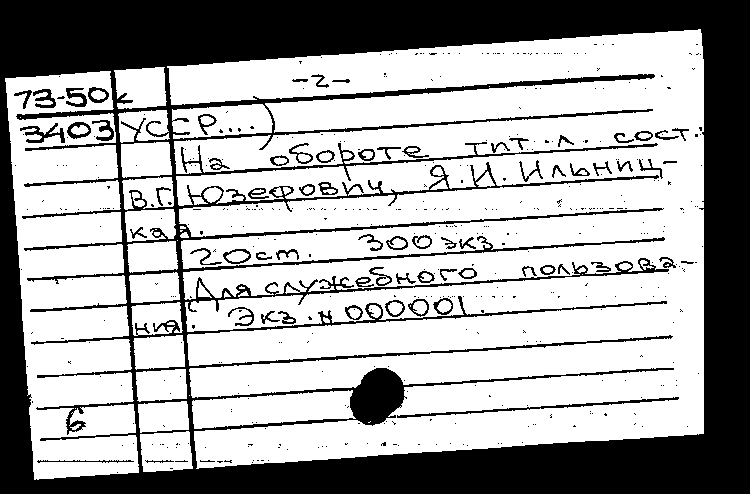 -2-
73-50к
3403 УССР....)
На обороте тит.л. сост.:
В.Г.Юзефович, Я.И.Ильниц-
кая.
20ст. 300экз.
Для служебного пользова-
ния. Экз.№000001.
6